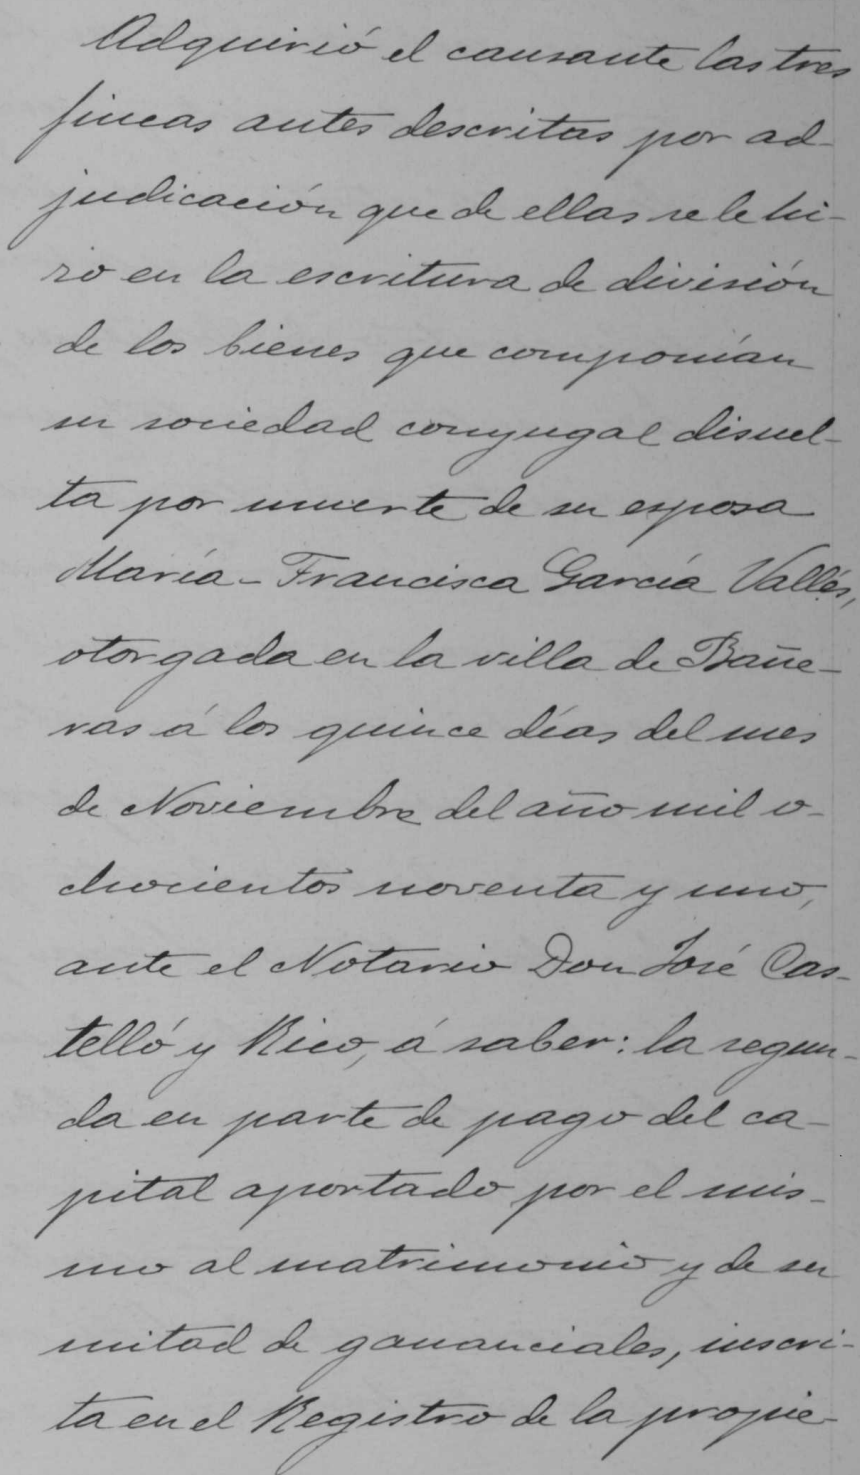 Adquirió el causante las tres
fincas antes descritas por ad-
judicación que de ellas se le hi-
zo en la escritura de división
de los bienes que componían
su sociedad conyugal disuel-
ta por muerte de su esposa
María-Francisca García Vallés,
otorgada en la villa de Bañe-
ras á los quince días del mes
de Noviembre del año mil o-
chocientos noventa y uno,
ante el Notario Don José Cas-
telló y Rico, á saber: la segun-
da en parte de pago del ca-
pital aportado por el mis-
mo al matrimonio y de su
mitad de gananciales, inscri-
ta en el Registro de la propie-